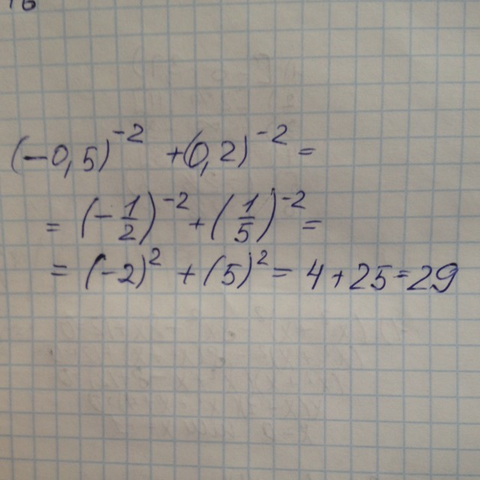 (-0,5)^-2 + (0,2)^-2 =
= (-1/2)^-2 + (1/5)^-2 =
= (-2)^2 + (5)^2 = 4 + 25 = 29